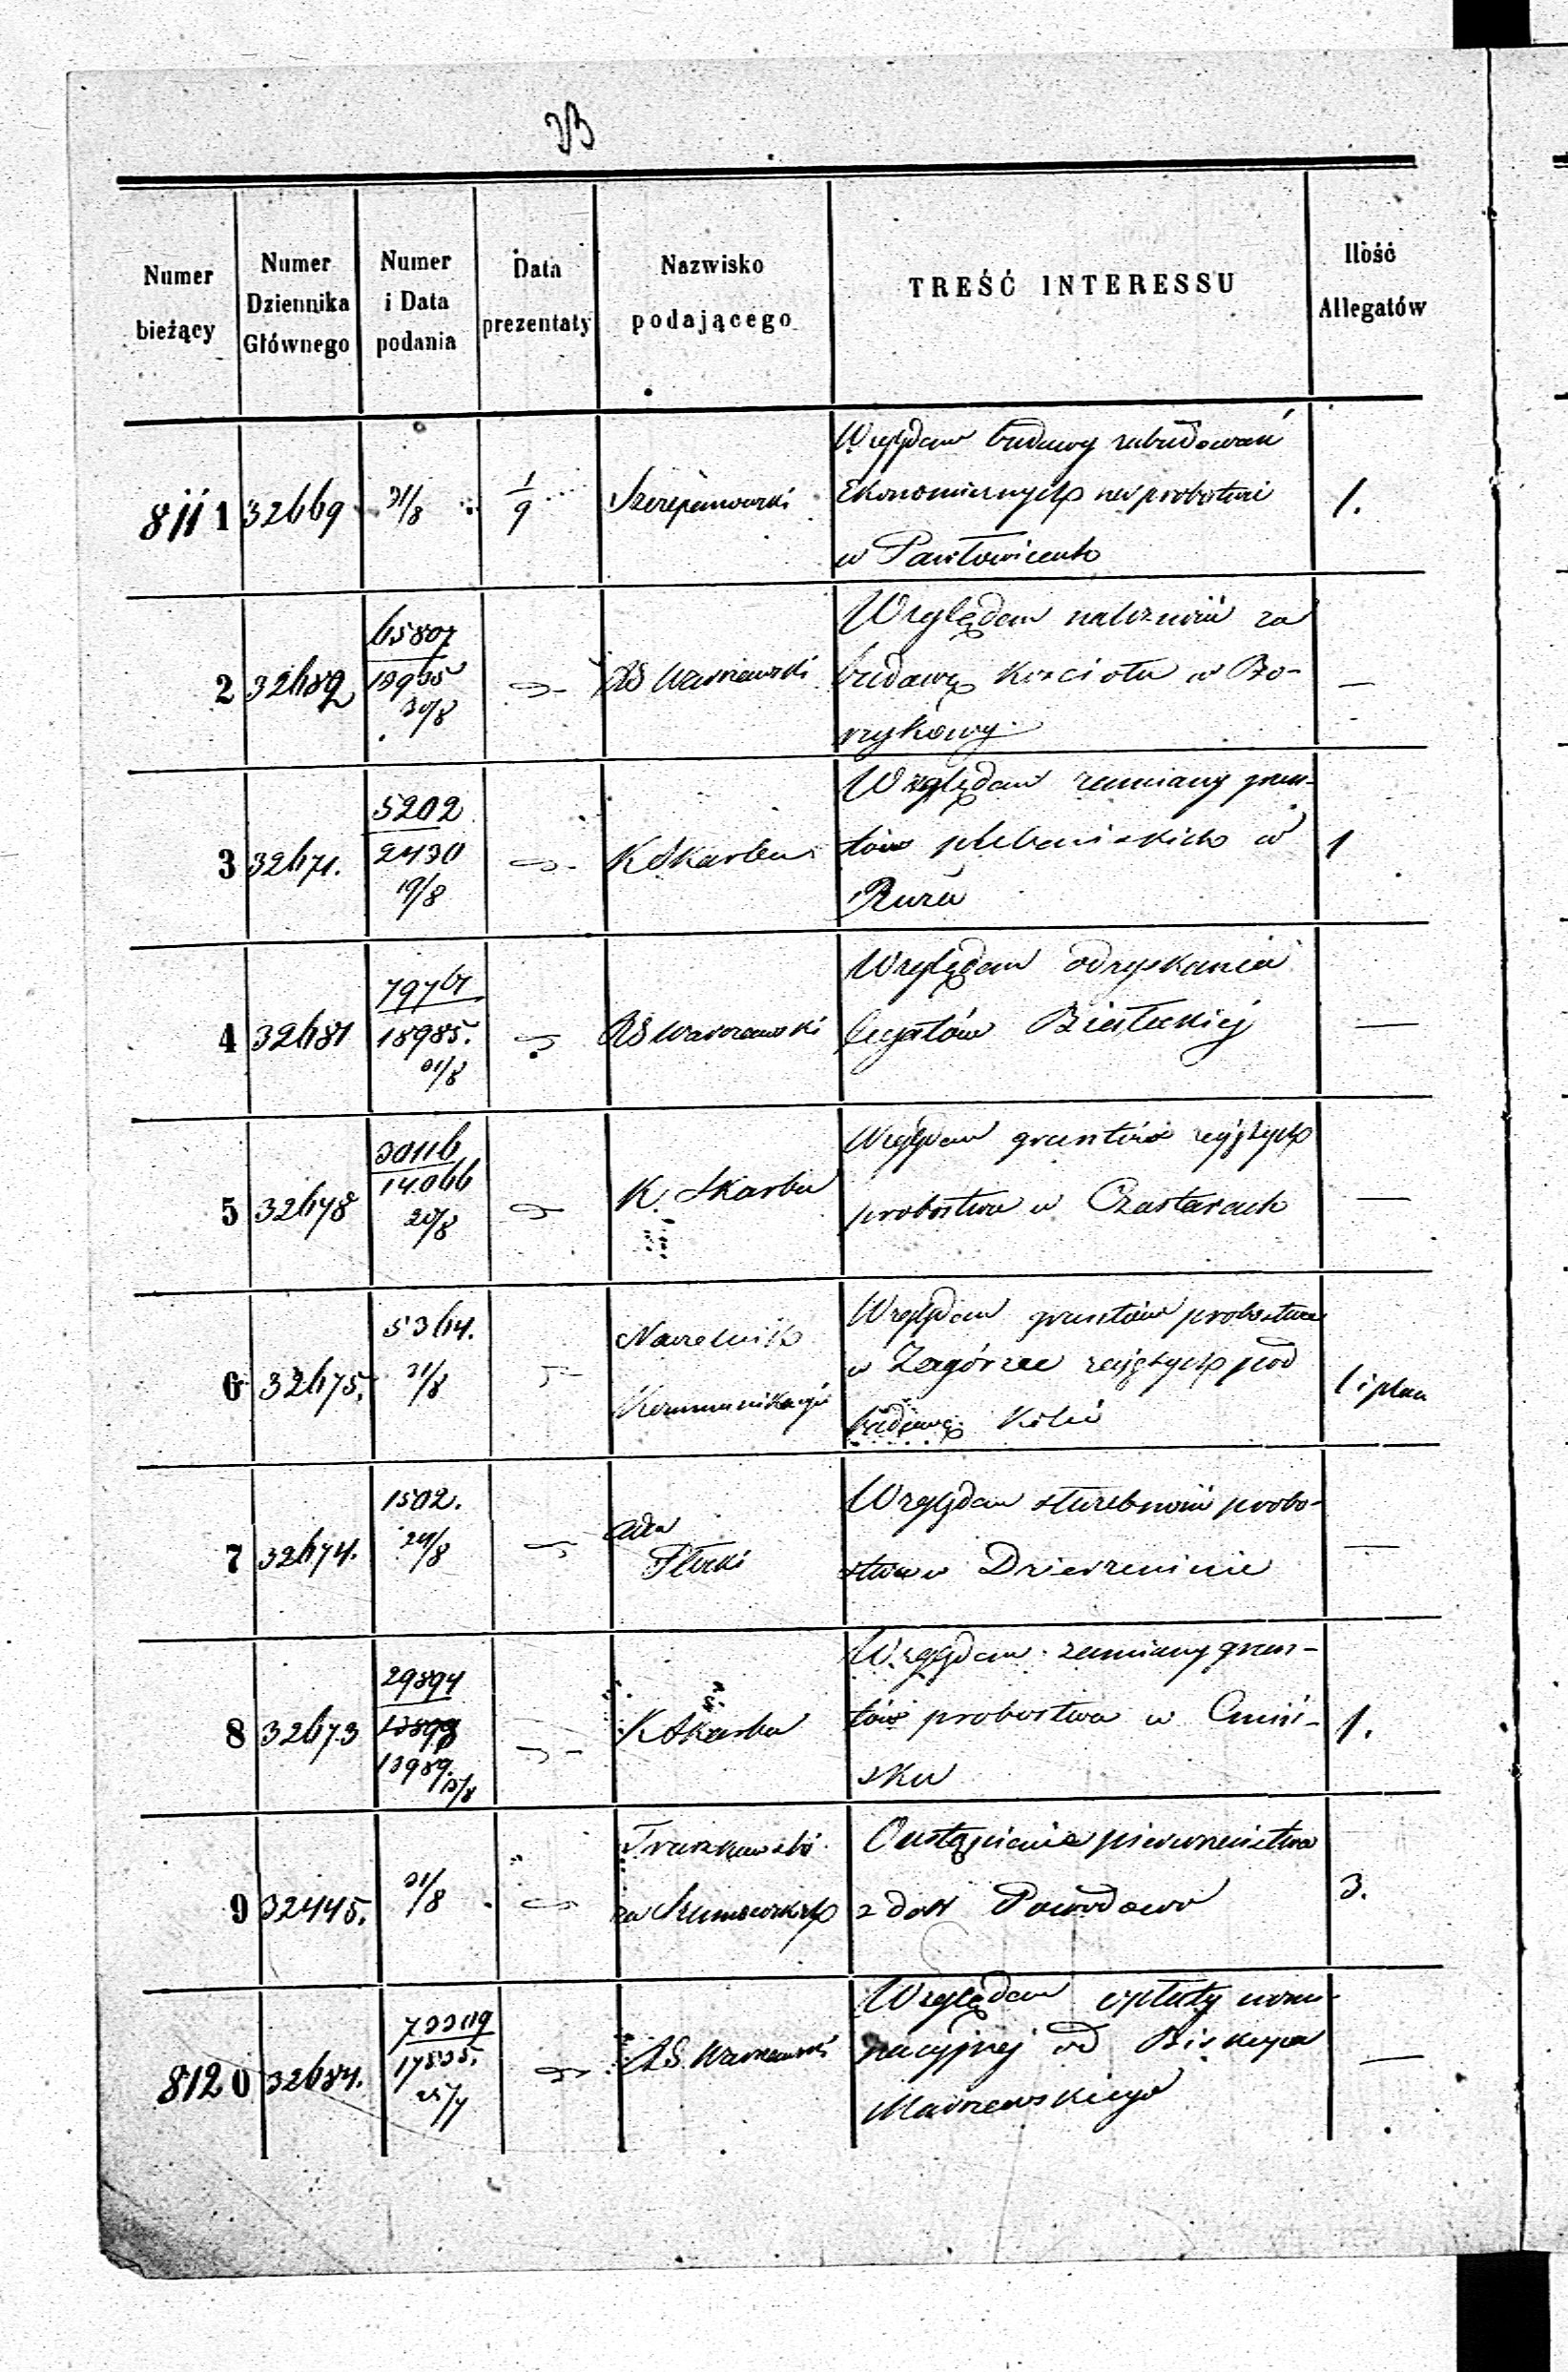 Numer bieżący
Numer Dziennika Głównego
Numer i Data podania
Data prezentaty
Nazwisko podającego
TREŚĆ INTERESSU
Ilość Allegatów
8111
32669
31/8
1/9
Szczepanowski
Względem budowy zabudowań
Ekonomicznych na probostwie
w Pawłowicach
1.
2
32682
65807
30/8
RG Warszawski
Względem należności za
budowę Kościoła w Bo-
rzykowy
—
3
32671.
5202
2430
19/8
K Skarbu
Względem zamiany grun-
tów plebańskich w
1
4
32681
18985.
31/8
RG Warszawski
Względem odzyskania
legatów Białeckiej
—
5
32678
30116
14.066
20/8
K. Skarbu
Względem gruntów zajętych
probostwa w Czastarach
—
6
32675.
5364.
31/8
Naczelnik
Kommunikacyi
Względem gruntów probostwa
w Zagórzu zajętych pod
budowę Kolei
1 i plan
7
32674.
1502.
24/8
Płocki
Względem służebności probo-
stwa w Dzierzeninie
—
8
32673
29894
13989.
K Skarbu
Względem zamiany grun-
tów probostwa w Cmiń-
sku
1.
9
32445.
31/8
Truszkowski
za Szumowskich
Oustąpienie pierwszeństwa
z dóbr Pawodowo
3.
8120
32684.
17535.
25/7
RG. Warszawski
Względem opłaty nomi-
nacyjnej od Biskupa
Marszewskiego
—